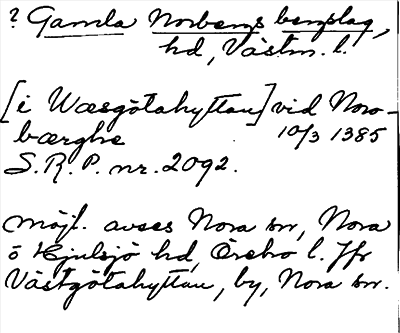 ? Gamla Norbergs bergslag,
hd, Västm. l.
[i Wæsgötahyttan] vid Noro-
bærghe 10/3 1385
S.R.P. nr. 2092.
Möjl. avses Nora sn, Nora
o Hjulsjö hd, Örebro l. Jfr
Västgötahyttan, by, Nora sn.